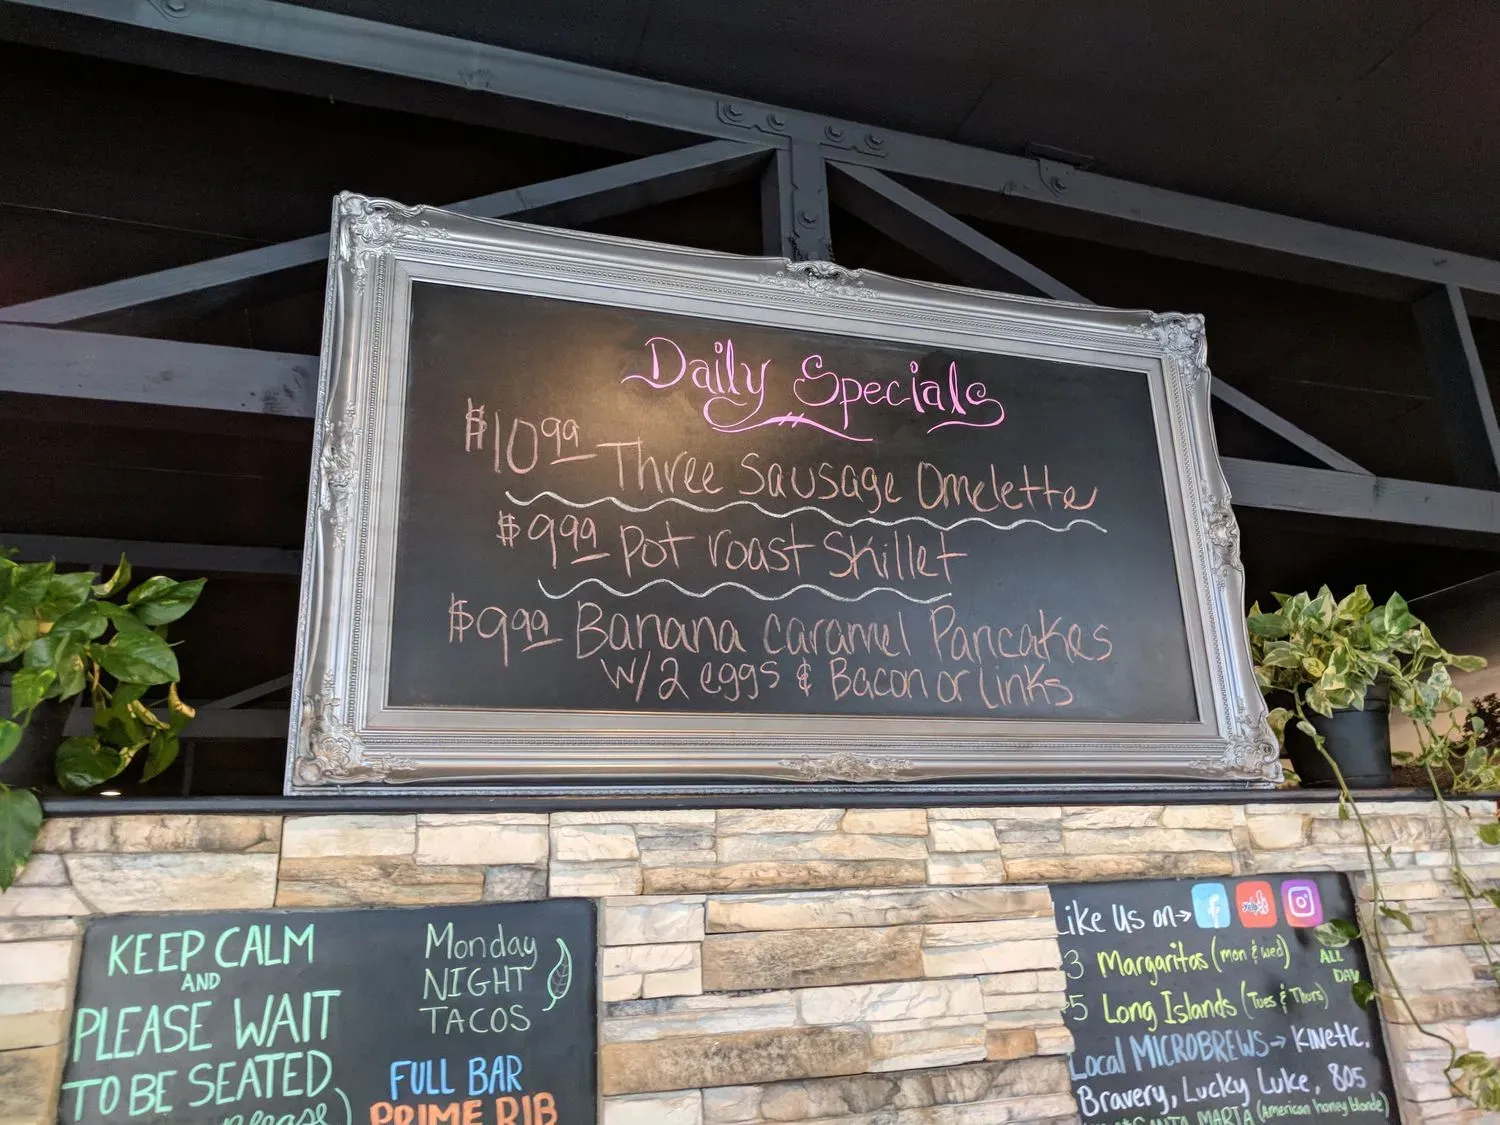 Daily Specials
$10.99 Three Sausage Omelette
$9.99 Pot roast Skillet
$9.99 Banana Caramel Pancakes
w/2 eggs & Bacon or Links
KEEP CALM
AND
PLEASE WAIT
TO BE SEATED
please
Monday
NIGHT
TACOS
FULL BAR
PRIME RIB
Like Us on→ f yelp
3 Margaritas (mon & wed) ALL DAY
$5 Long Islands (Tues & Thurs)
Local MICROBREWS→ Kinetic,
Bravery, Lucky Luke, 805
SANTA MARIA (American honey blonde)